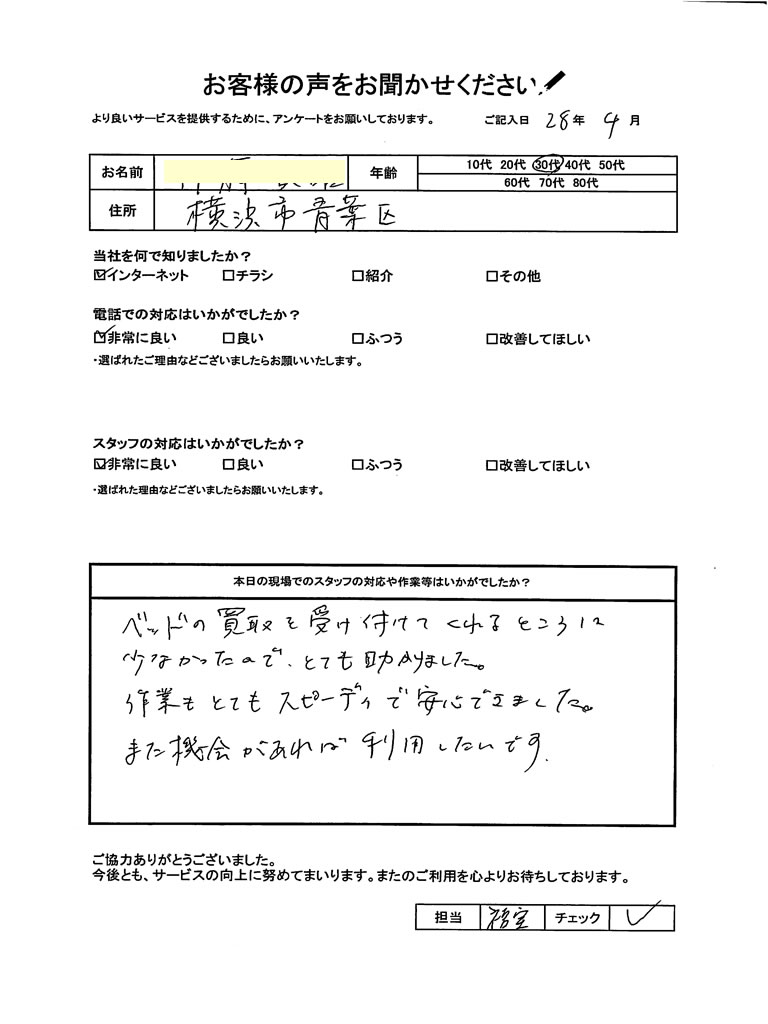 お客様の声をお聞かせください
より良いサービスを提供するために、アンケートをお願いしております。 ご記入日 28年 4月
お名前 年齢 10代 20代 30代 40代 50代
60代 70代 80代
住所 横浜市青葉区
当社を何で知りましたか？
☑インターネット □チラシ □紹介 □その他
電話での対応はいかがでしたか？
☑非常に良い □良い □ふつう □改善してほしい
・選ばれたご理由などございましたらお願いいたします。
スタッフの対応はいかがでしたか？
☑非常に良い □良い □ふつう □改善してほしい
・選ばれた理由などございましたらお願いいたします。
本日の現場でのスタッフの対応や作業等はいかがでしたか？
ベッドの買取を受け付けてくれるところは
少なかったので、とても助かりました。
作業もとてもスピーディで安心できました。
また機会があれば利用したいです.
ご協力ありがとうございました。
今後とも、サービスの向上に努めてまいります。またのご利用を心よりお待ちしております。
担当 チェック ✓